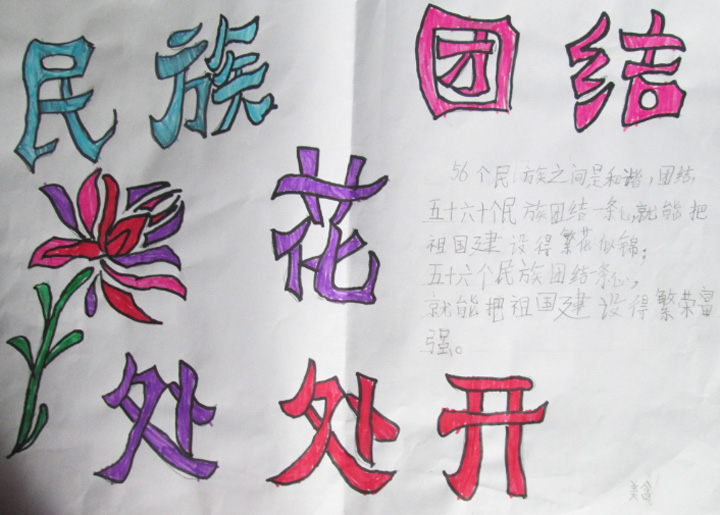 民族团结
花
处处开
56个民族之间是和谐，团结，
五十六十个民族团结一条心，就能把
祖国建设得繁花似锦；
五十六个民族团结条心，
就能把祖国建设得繁荣富
强。